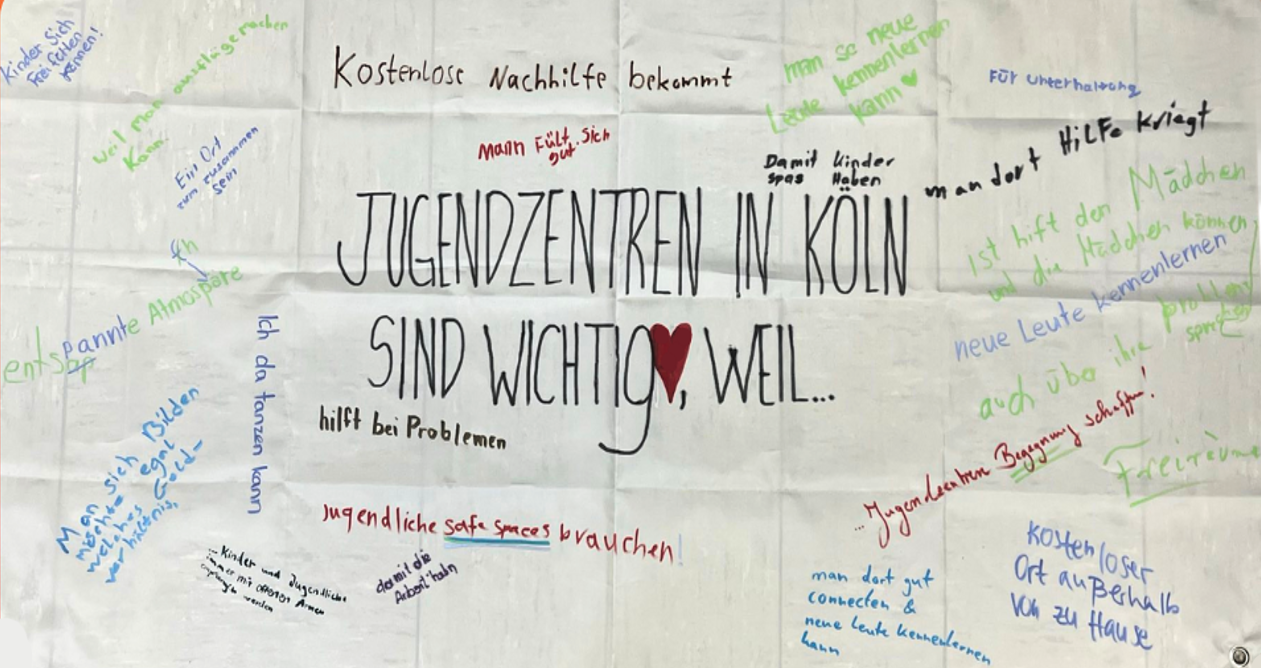 Kinder Sich
frei fühlen
können!
weil man ausflüge machen
kann
Kostenlose Nachhilfe bekommt
man so neue
Leute kennenlernen
kann
Für unterhaltung
Ein Ort
zum zusammen
sein
Mann Fült Sich
gut.
Damit kinder
spas Haben
man dort HiLFe kriegt
JUGENDZENTREN IN KÖLN
SIND WICHTIG, WEIL...
Ist hift den Mädchen
und die Mädchen können
auch über ihre problem
sprechen
neue Leute kennenlernen
entspannte Atmospäre
Ich da tanzen kann
hilft bei Problemen
Man sich Bilden
möchte egal
welches Geld-
verhältnis,
...Jugendzentren Begegnung schaffen!
Freiräume
jugendliche safe spaces brauchen!
...Kinder und Jugendliche
immer mit offenen Armen
empfangen werden
damit die
Arbeit haben
man dort gut
connecten &
neue leute kennenlernen
kann
Kostenloser
Ort außerhalb
von zu Hause